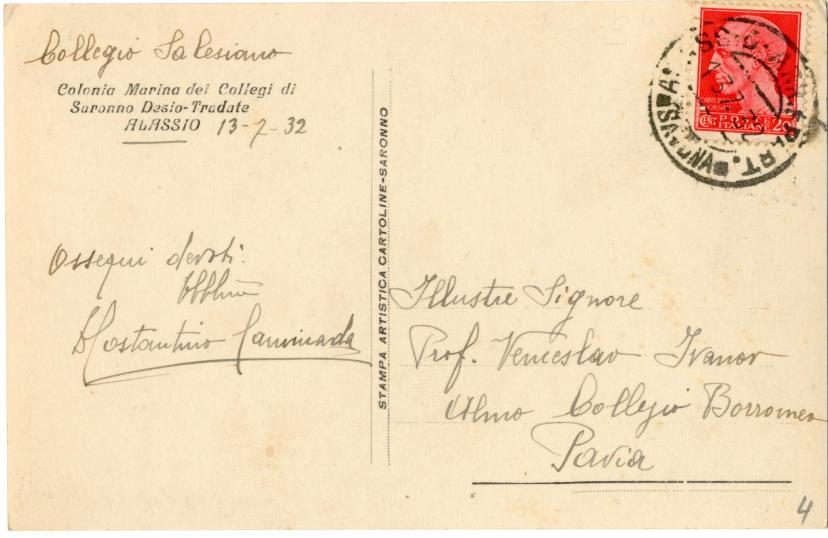 Collegio Salesiano
Colonia Marina dei Collegi di
Saronno Desio-Tradate
ALASSIO 13-7-32
Ossequi devoti.
D Costantino Caminada
STAMPA ARTISTICA CARTOLINE-SARONNO
POSTE
CENT ITALIANE 20
Illustre Signore
Prof. Venceslav Ivanov
Almo Collegio Borromeo
Pavia
4